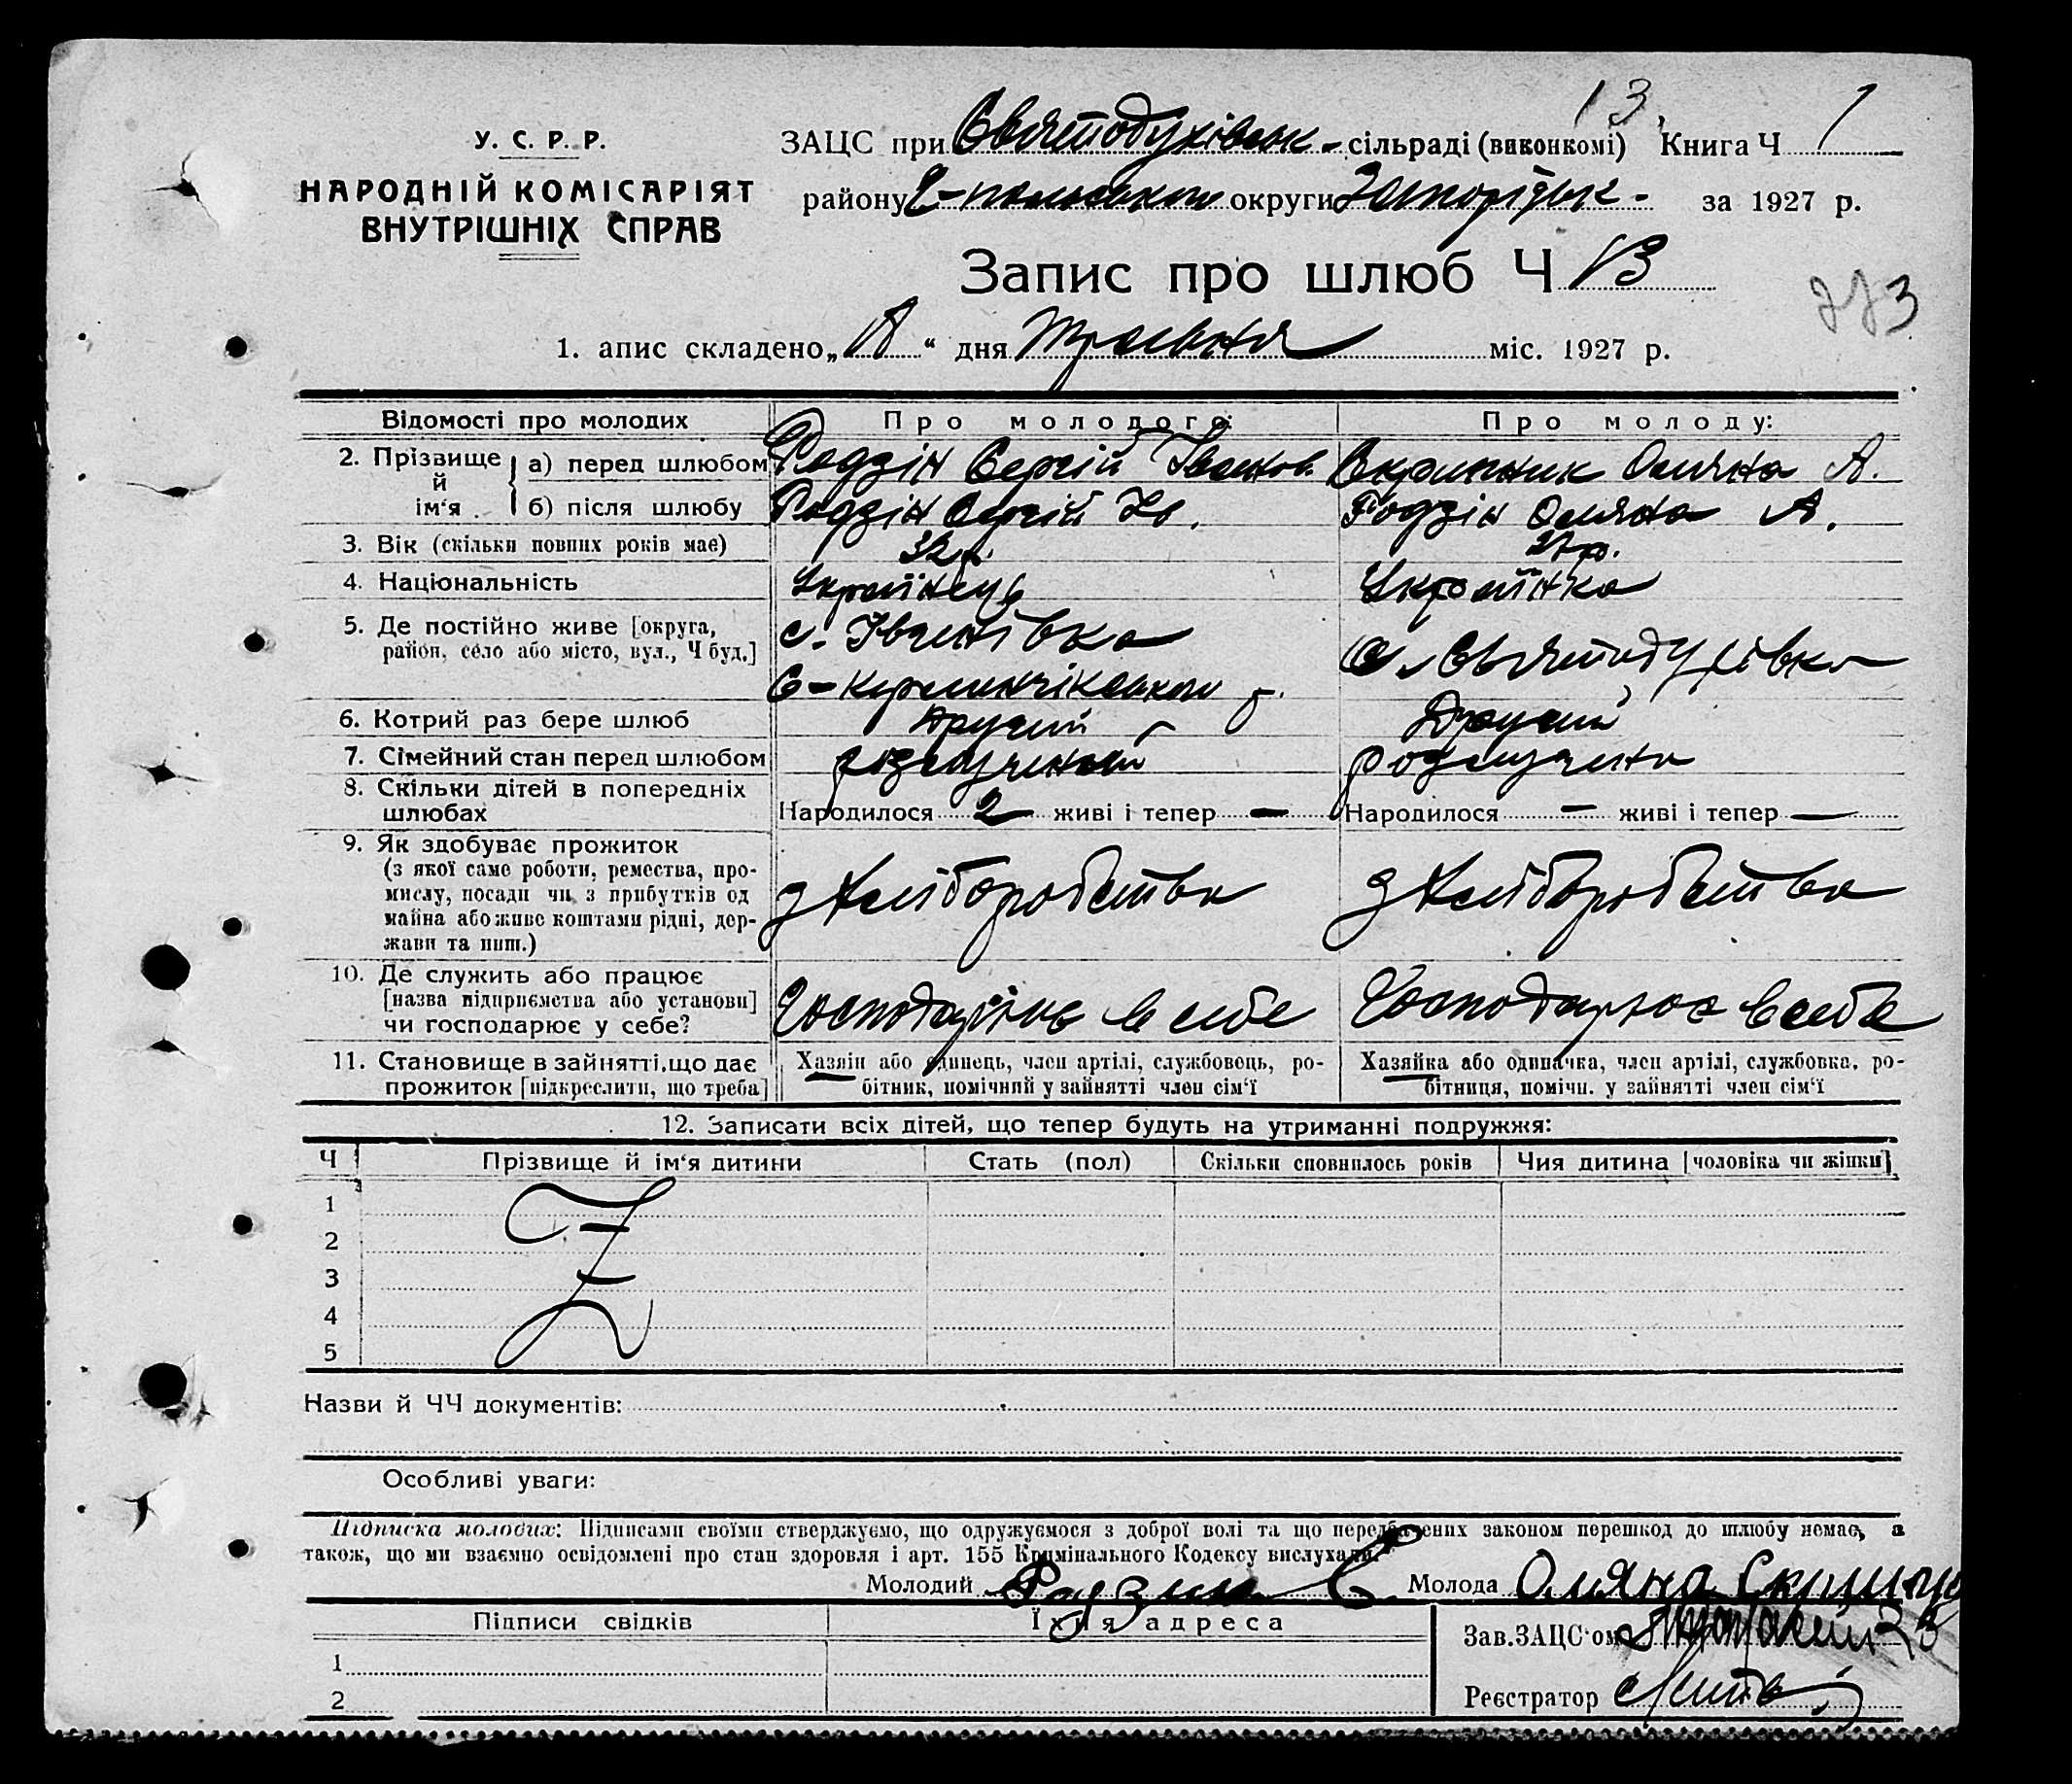 13
У. С. Р. Р.
НАРОДНІЙ КОМІСАРІЯТ
ВНУТРІШНІХ СПРАВ
ЗАЦС при Святодухівськ- сільраді (виконкомі) Книга Ч 1
району Г-польського округи Запоріжськ- за 1927 р.
Запис про шлюб Ч 13
1. апис складено „ “ дня Травня міс. 1927 р.
Відомості про молодих Про молодого: Про молоду:
2. Прізвище й ім‘я а) перед шлюбом Родзін Сергій Іванов. Скрипник Оляна А.
б) після шлюбу Родзін Сергій Ів. Родзін Оляна А.
3. Вік (скільки повних років має) 32 р. 27 р.
4. Національність Українець Українка
5. Де постійно живе [округа, район, село або місто, вул., Ч буд.] с. Іванівка С. Святодухівка
р.
6. Котрий раз бере шлюб Другий Другий
7. Сімейний стан перед шлюбом розлучений розлучена
8. Скільки дітей в попередніх шлюбах Народилося 2 живі і тепер — Народилося — живі і тепер —
9. Як здобуває прожиток
(з якої саме роботи, ремества, про-
мислу, посади чи з прибутків од
майна або живе коштами рідні, дер-
жави та инш.) з хліборобства з хліборобства
10. Де служить або працює
[назва підприємства або установи]
чи господарює у себе? Господарює в себе Господарює в себе
11. Становище в зайнятті, що дає
прожиток [підкреслити, що треба]
Хазяїн або одинець, член артілі, службовець, ро-
бітник, помічний у зайнятті член сім‘ї
Хазяйка або одиначка, член артілі, службовка, ро-
бітниця, помічн. у зайнятті член сім‘ї
12. Записати всіх дітей, що тепер будуть на утриманні подружжя:
Ч Прізвище й ім‘я дитини Стать (пол) Скільки сповнилось років Чия дитина [чоловіка чи жінки]
1
2
3
4
5
Назви й ЧЧ документів:
Особливі уваги:
Підписка молодих: Підписами своїми стверджуємо, що одружуємося з доброї волі та що передбачених законом перешкод до шлюбу немає, а
також, що ми взаємно освідомлені про стан здоровля і арт. 155 Кримінального Кодексу вислухали.
Молодий Родзин С. Молода Оляна Скрипник
Підписи свідків Їхня адреса
Зав. ЗАЦС‘ом
1
2
Реєстратор